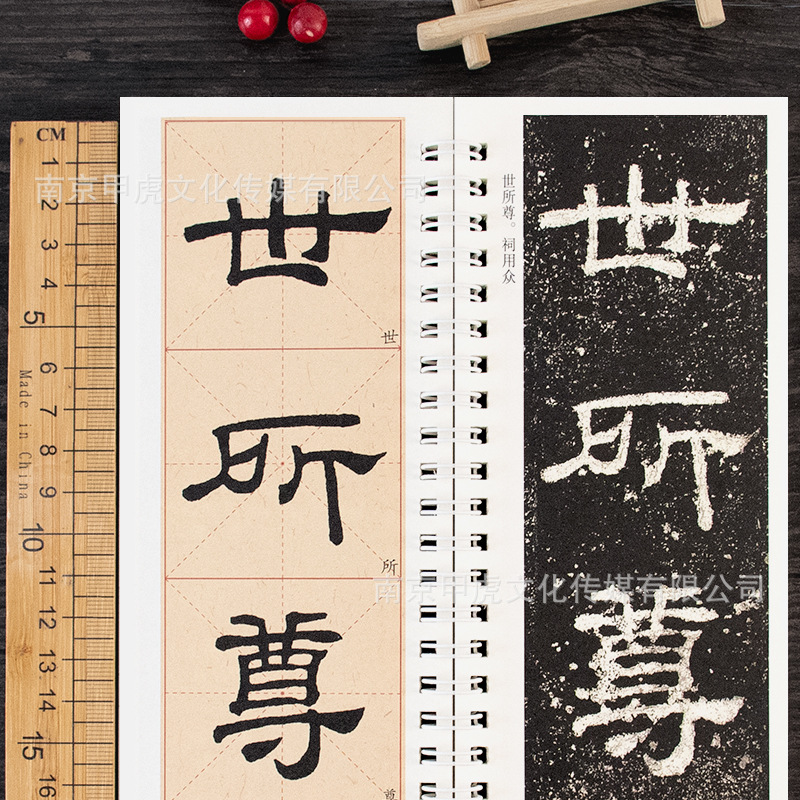 CM
1
2
3
4
5
6
7
8
9
10
11
12
13
14
15
16
Made in China
南京甲虎文化传媒有限公司
世
世
所
所
尊
尊
世所尊。祠用众
世
所
尊
南京甲虎文化传媒有限公司